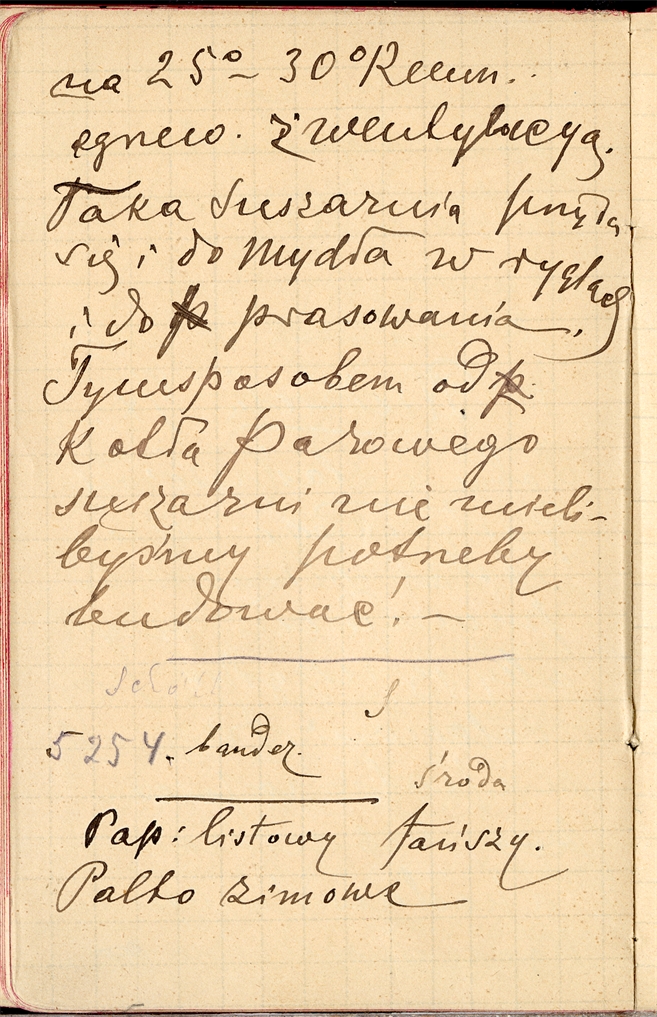 na 25° – 30° Reeum.
ogniew. z wentylacyą.
Taka Suszarnia przyda
się i do Mydła w ryglach
i do prasowania.
Tymsposobem od
Kotła Parowego
suszarni nie mieli-
byśmy potrzeby
budować! –
S
5254. bander.
środa
Pap: listowy tańszy.
Palto zimowe